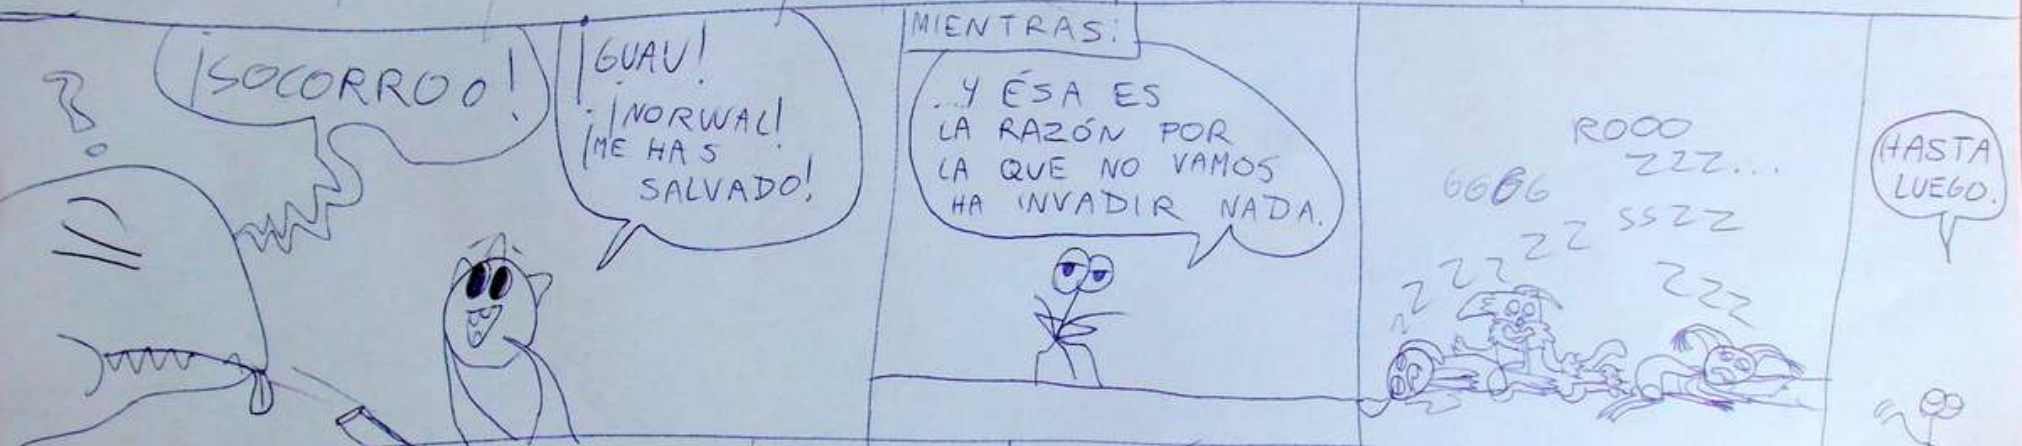 ?
¡SOCORROO!
¡GUAU!
¡NORWAL!
¡ME HAS
SALVADO!
MIENTRAS:
...Y ÉSA ES
LA RAZÓN POR
LA QUE NO VAMOS
HA INVADIR NADA.
ROOO
ZZZ...
GGGG
SSZZ
ZZ
ZZZ
ZZZ
HASTA
LUEGO.